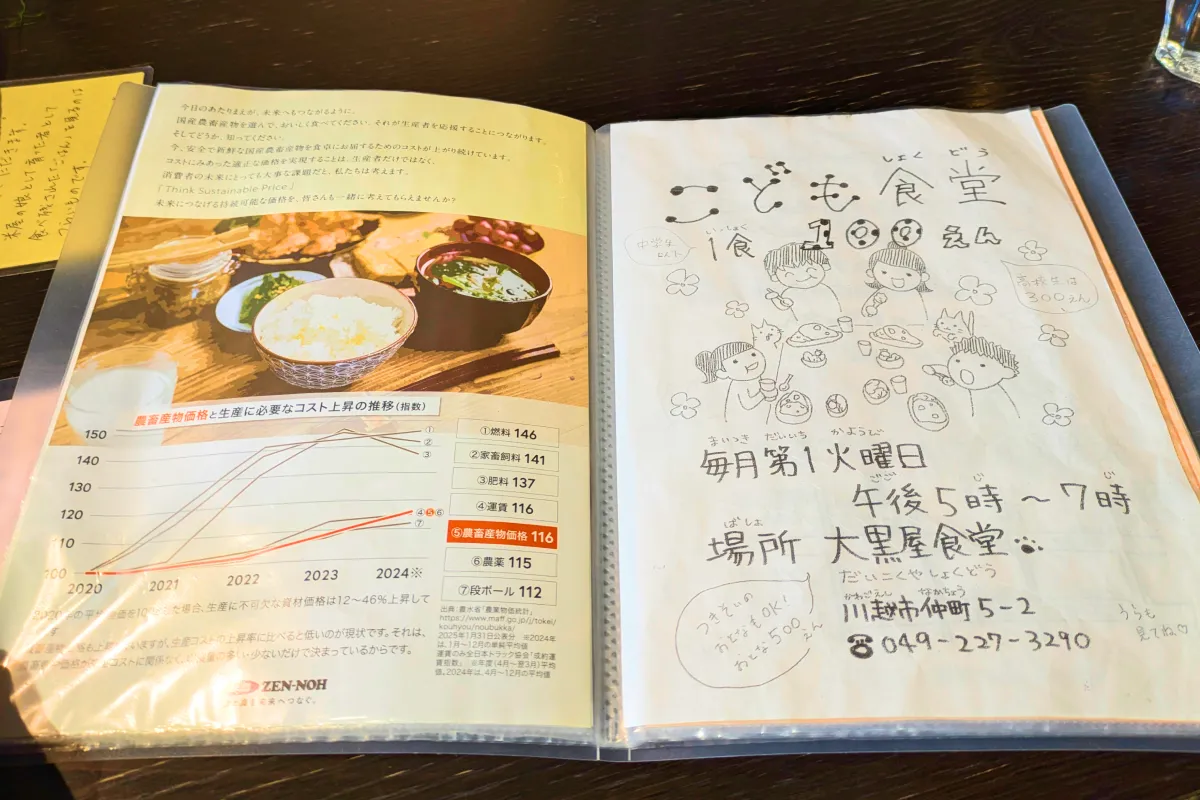 食べ残されたごはんを見るのは
今日のあたりまえが、未来へもつながるように。
国産農畜産物を選んで、おいしく食べてください。それが生産者を応援することにつながります。
そしてどうか、知ってください。
今、安全で新鮮な国産農畜産物を食卓にお届するためのコストが上がり続けています。
コストにみあった適正な価格を実現することは、生産者だけではなく、
消費者の未来にとっても大事な課題だと、私たちは考えます。
「Think Sustainable Price」
未来につなげる持続可能な価格を、皆さんも一緒に考えてもらえませんか?
農畜産物価格と生産に必要なコスト上昇の推移(指数)
150
140
130
120
100
2020
2021
2022
2023
2024※
①
②
③
④⑤⑥
⑦
①燃料 146
②家畜飼料 141
③肥料 137
④運賃 116
⑤農畜産物価格 116
⑥農薬 115
⑦段ボール 112
出典:農水省「農業物価統計」
https://www.maff.go.jp/j/tokei/
kouhyou/noubukka/
2025年1月31日公表分 ※2024年
は、1月~12月の単純平均値
運賃のみ全日本トラック協会「成約運
賃指数」 ※年度(4月~翌3月)平均
値。2024年は、4月~12月の平均値
場合、生産に不可欠な資材価格は12~46%上昇して
いますが、生産コストの上昇率に比べると低いのが現状です。それは、
ZEN-NOH
しょく どう
こども食堂
中学生
以下
いっしょく
1食 100えん
高校生は
300えん
まいつき だいいち かようび
毎月第1火曜日
ごご じ じ
午後5時~7時
ばしょ
場所 大黒屋食堂
だいこくやしょくどう
かわごえし なかちょう
川越市仲町5-2
☎049-227-3290
つきそいの
おとなもOK!
おとな500
えん
うらも
見てね♡